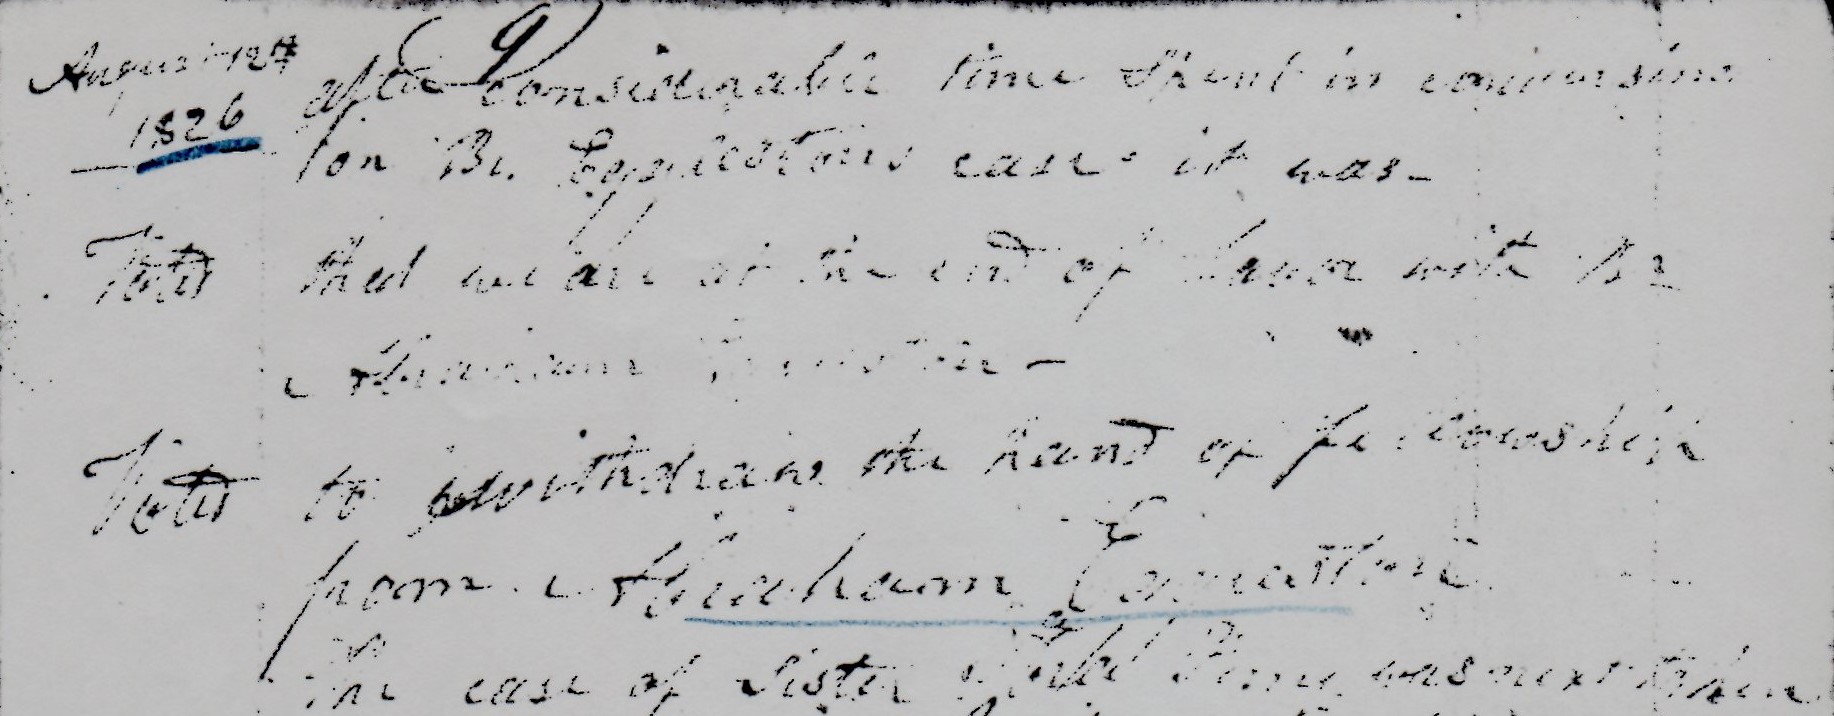 August 12th
1826
after considerable time spent in conversing
on Br. Eggleston's case it was
Voted that we are at the end of labor with Br
Abraham
Voted to withdraw the hand of fellowship
from Abraham Eggleston
The case of Sister was next taken